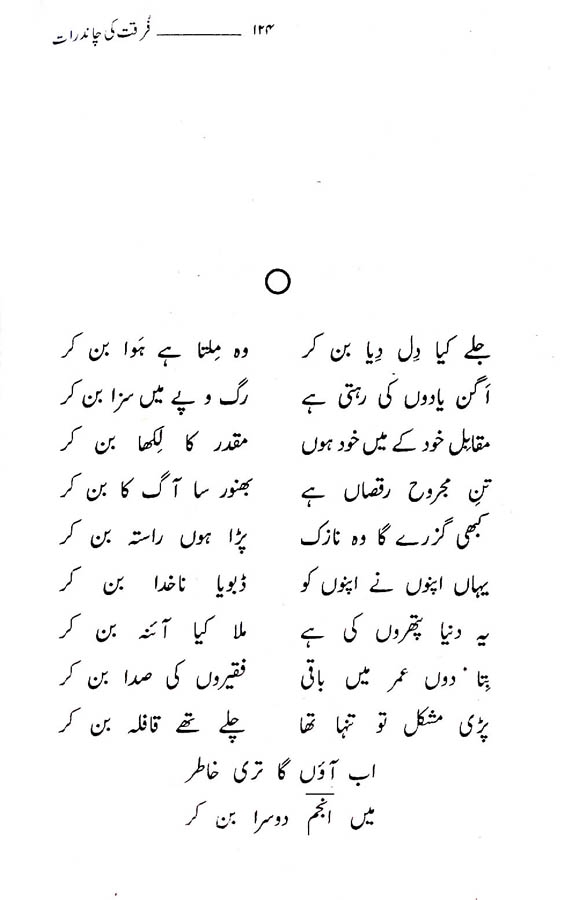 فُرقت کی چاند رات ________ ۱۲۴
جلے کیا دِل دِیا بن کر وہ مِلتا ہے ہَوا بن کر
اَگن یادوں کی رہتی ہے رگ و پے میں سزا بن کر
مقابِل خود کے میں خود ہوں مقدر کا لِکھا بن کر
تنِ مجروح رقصاں ہے بھنور سا آگ کا بن کر
کبھی گزرے گا وہ نازک پڑا ہوں راستہ بن کر
یہاں اپنوں نے اپنوں کو ڈبویا ناخدا بن کر
یہ دنیا پتھروں کی ہے ملا کیا آئنہ بن کر
بِتا دوں عمر میں باقی فقیروں کی صدا بن کر
پڑی مشکل تو تنہا تھا چلے تھے قافلہ بن کر
اب آؤں گا تری خاطر
میں انجم دوسرا بن کر